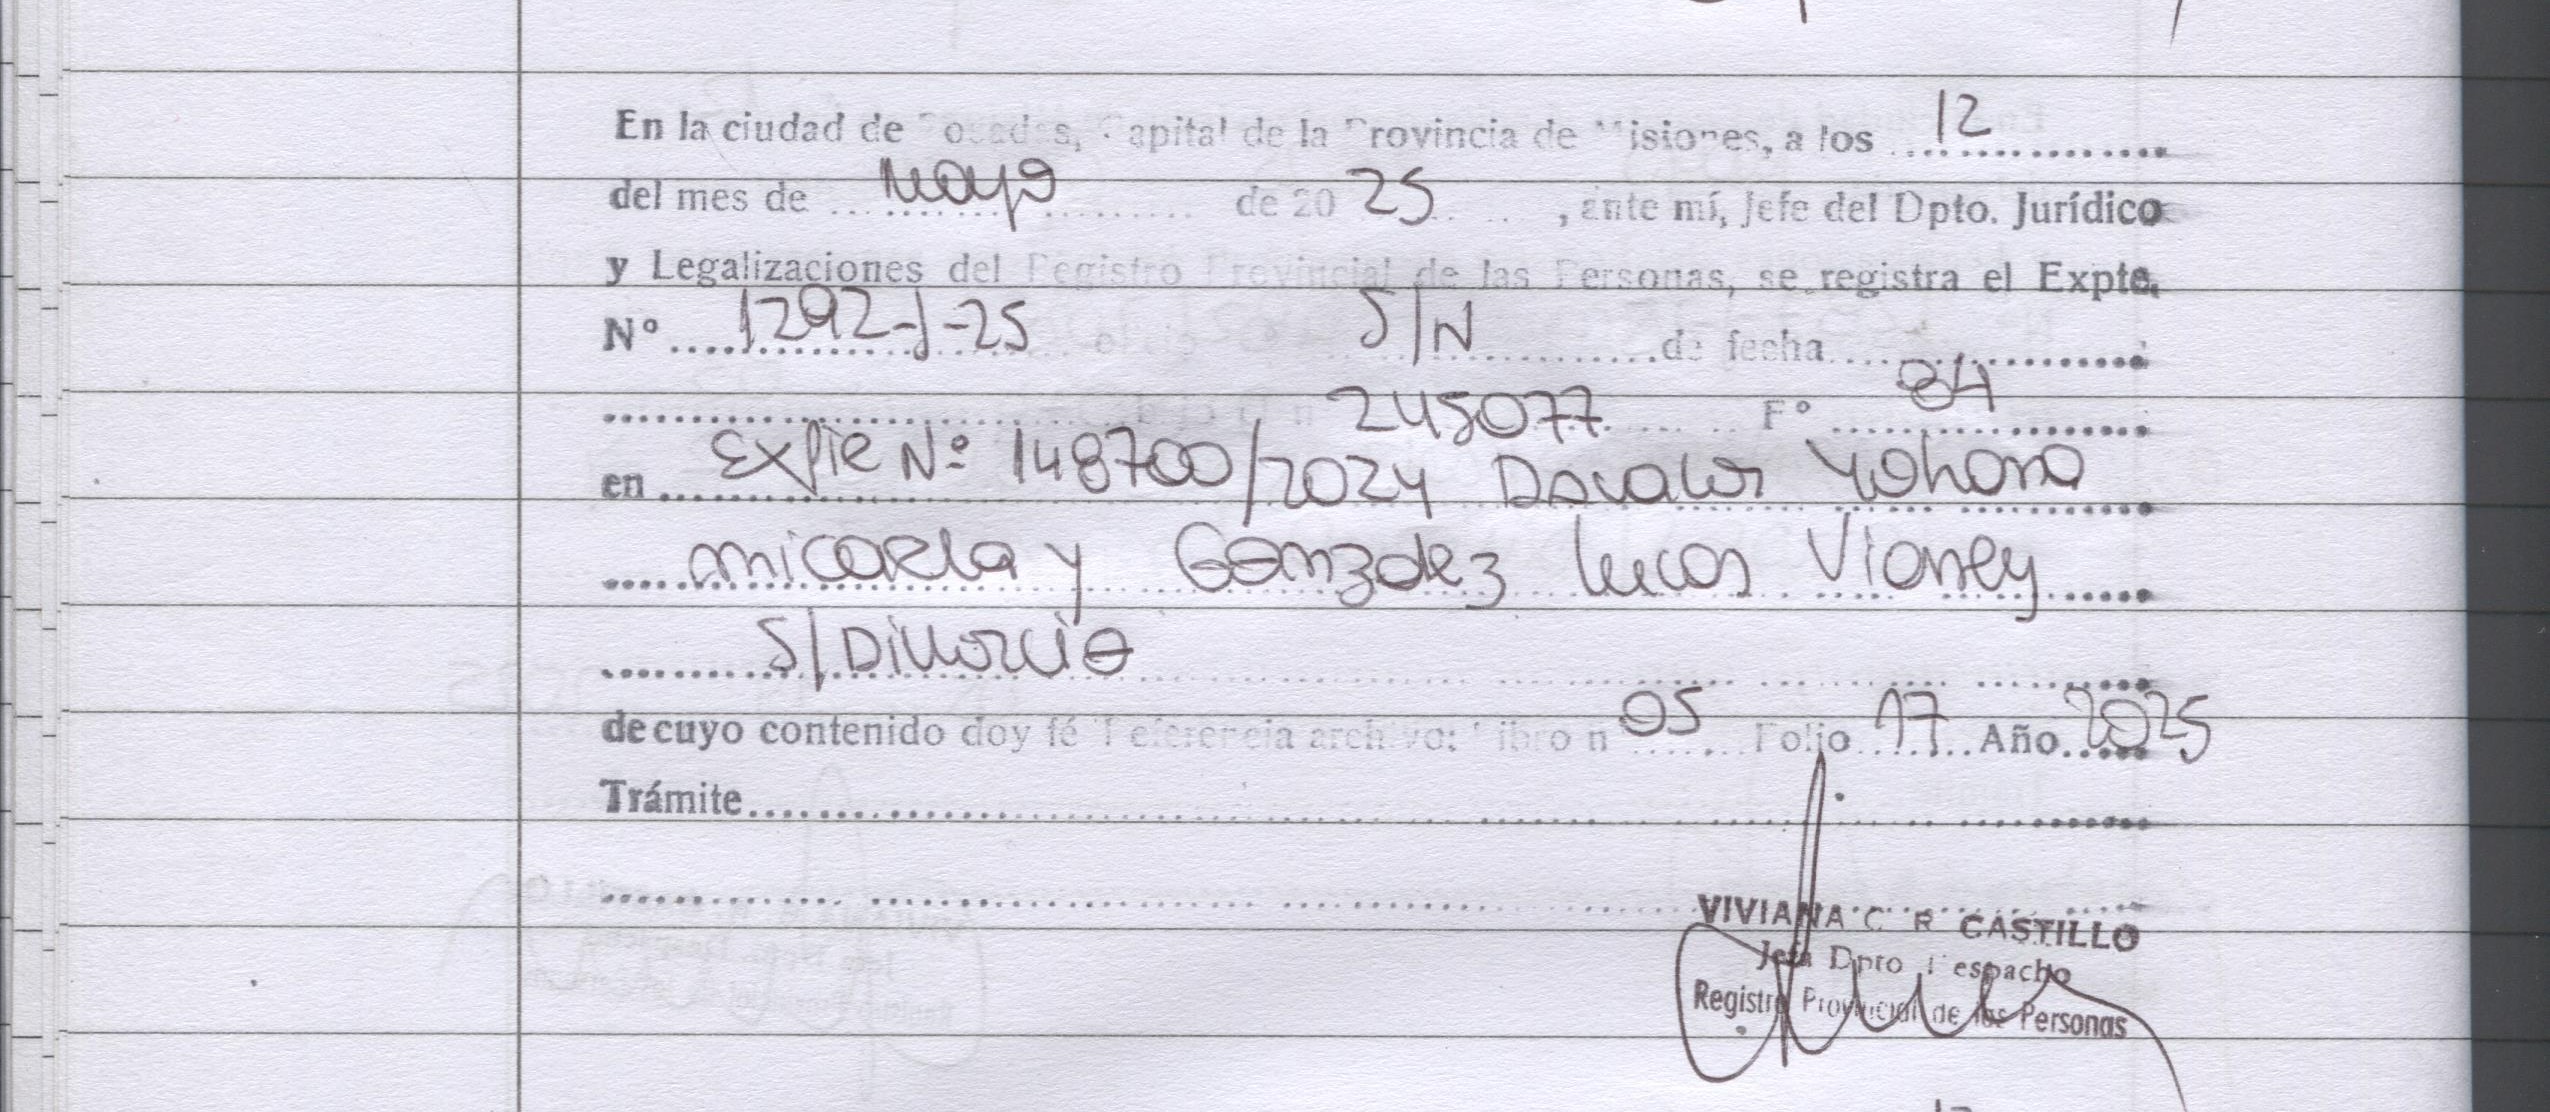 En la ciudad de Posadas, Capital de la Provincia de Misiones, a los 12
del mes de mayo de 20 25, ante mí, Jefe del Dpto. Jurídico
y Legalizaciones del Registro Provincial de las Personas, se registra el Expte.
Nº 1292-J-25 S/N de fecha
245077 Fº 84
en Expte Nº 148700/2024 Davalos Yohana
micaela y Gonzalez lucas Vianey
S/Divorcio
de cuyo contenido doy fé Referencia archivo: Libro n 05 Folio 17 Año 2025
Trámite
VIVIANA C R CASTILLO
Jefa Dpto Despacho
Registro Provincial de las Personas